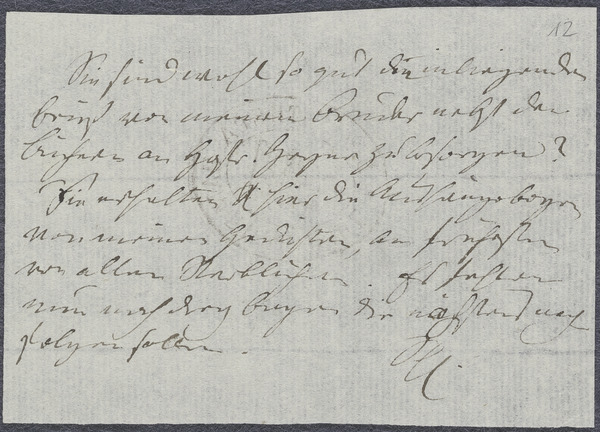 12
Sie sind wohl so gut den inliegenden
brief von meinem Bruder nebst den
büchern an Hofr. Heyne zu besorgen?
Sie erhalten hier die Aushängebogen
von meinen Gedichten, am frühesten
vor allen Sterblichen. Es fehlen
nun noch drey bogen die nächstens nach
folgen sollen.